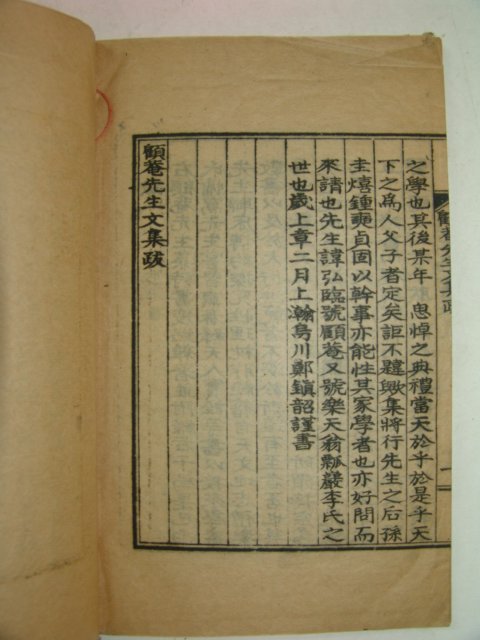 之學也其後某年 恩悼之典禮當天於乎於是乎天
下之爲人父子者定矣詎不韙歟集將行先生之后孫
圭熺鍾奭貞固以幹事亦能性其家學者也亦好問而
來請也先生諱弘臨號顧菴又號樂天翁瓢巖李氏之
世也歲上章二月上澣烏川鄭鎭韶謹書
顧菴先生文集跋